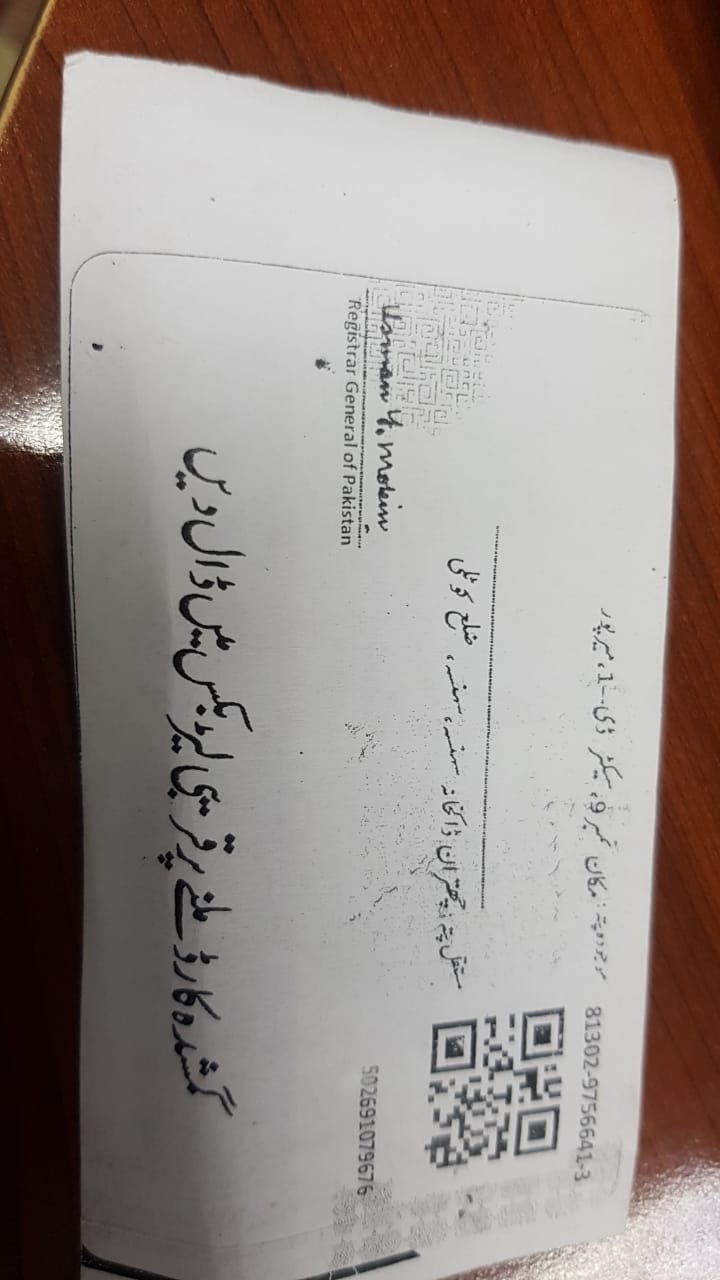 81302-9756641-3
موجودہ پتہ: مکان نمبر 9، سیکٹر ڈی-1، میرپور
مستقل پتہ: ڈاکخانہ سہنسہ، سہنسہ، ضلع کوٹلی
502691079676
Usman Y. Mobin
Registrar General of Pakistan
گمشدہ کارڈ ملنے پر قریبی لیٹر بکس میں ڈال دیں